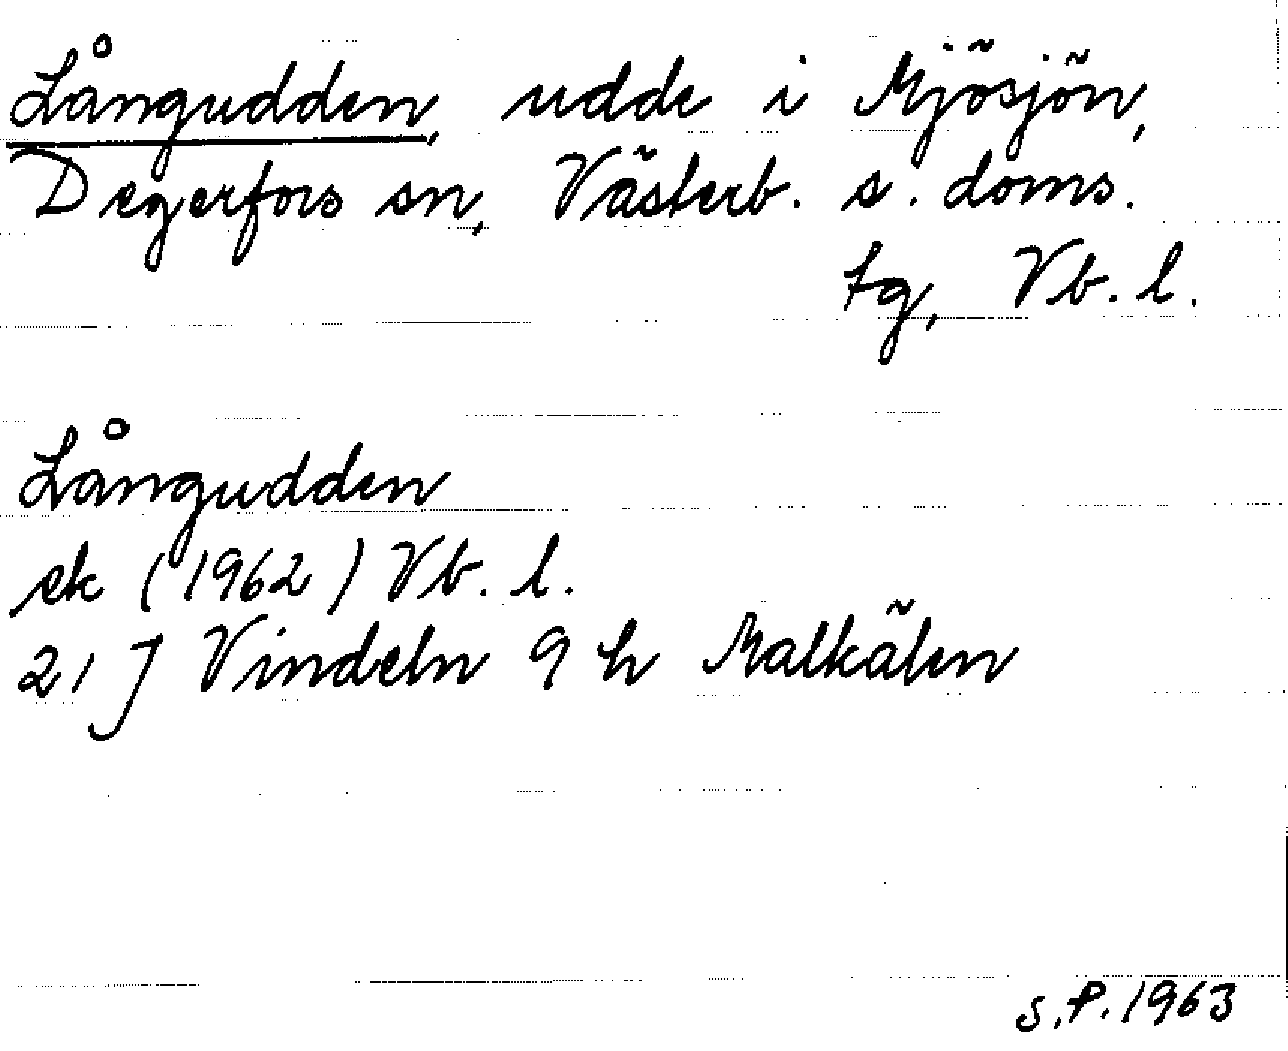 Långudden, udde i Mjösjön,
Degerfors sn, Västerb. s. doms.
tg, Vb. l.
Långudden
ek (1962) Vb. l.
21 J Vindeln 9 h Malkälen
S.P. 1963